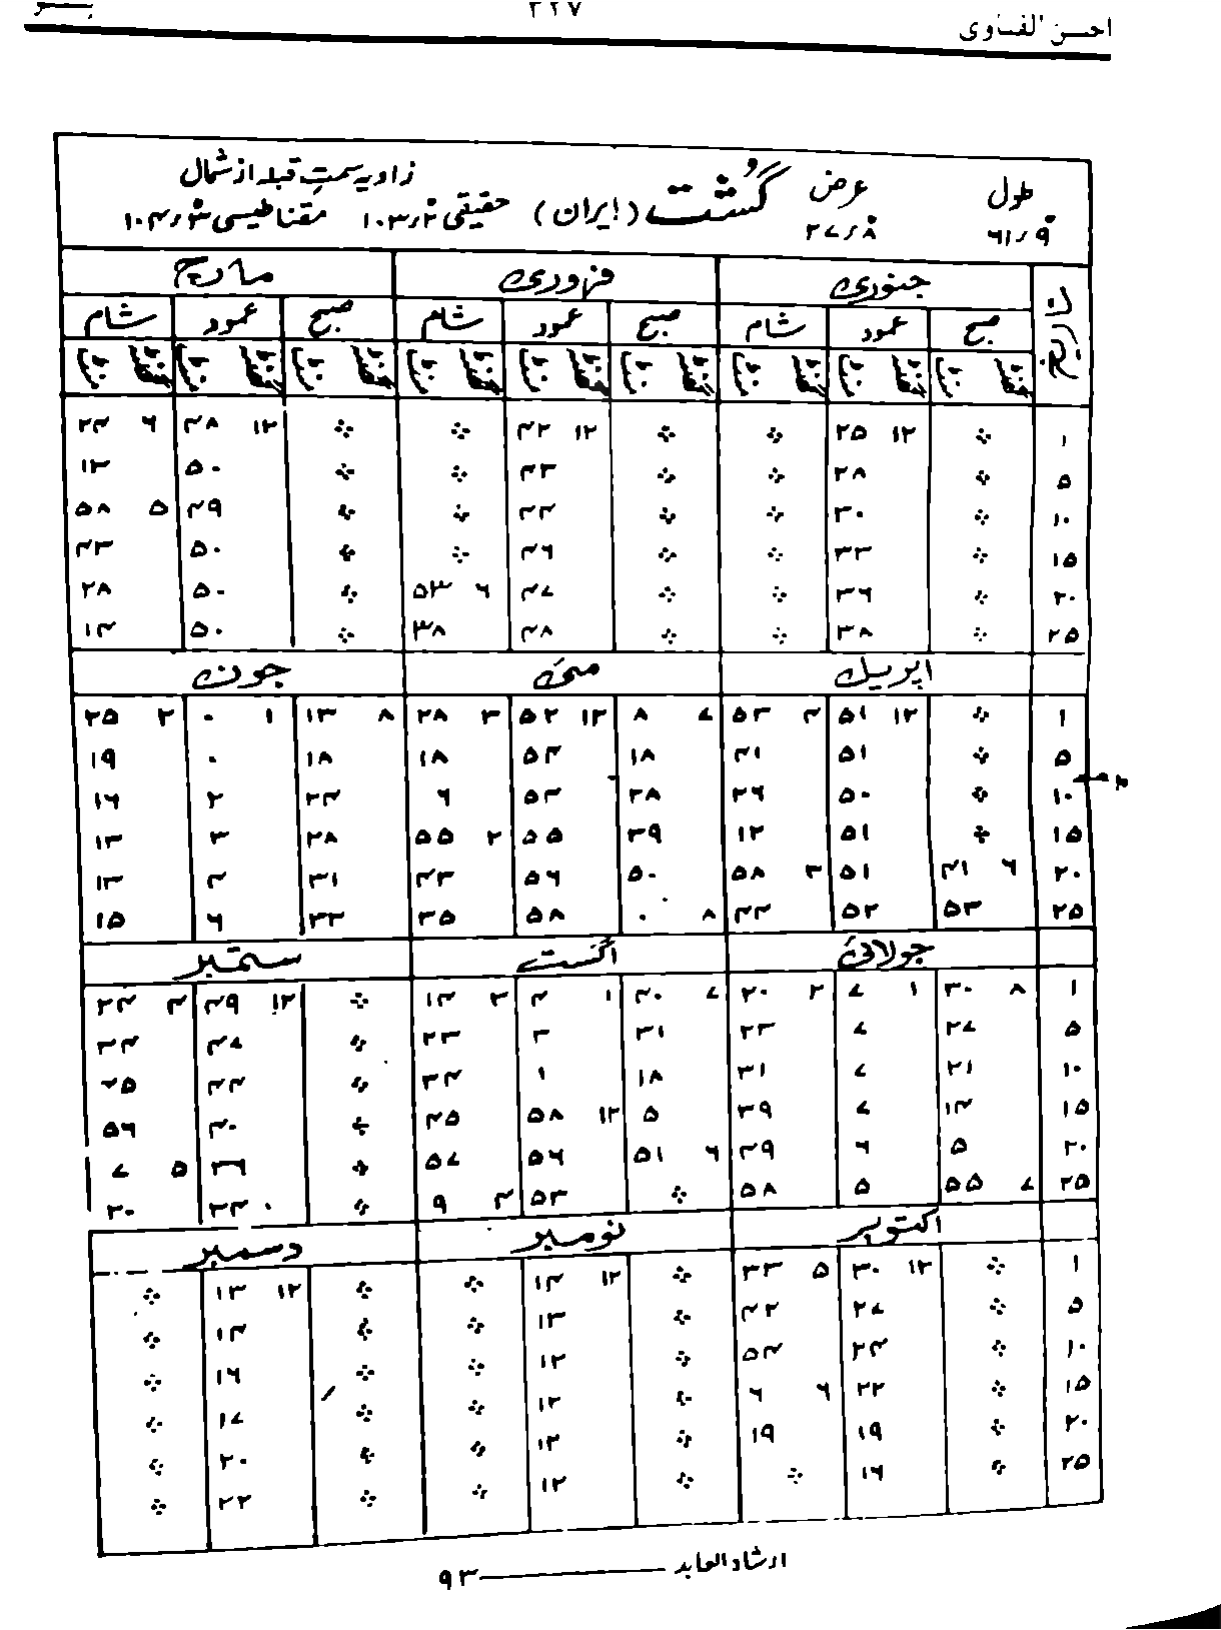 احسن الفتاوی ۲۲۷
طول عرض گُشت (ایران) زاویہ سمتِ قبلہ از شمال
۶۱٫۹ ۲۷٫۸ حقیقی ۱۰۳٫۲ مقناطیسی ۱۰۴٫۳
تاریخ جنوری فروری مارچ
صبح عمود شام صبح عمود شام صبح عمود شام
گھنٹہ منٹ گھنٹہ منٹ گھنٹہ منٹ گھنٹہ منٹ گھنٹہ منٹ گھنٹہ منٹ گھنٹہ منٹ گھنٹہ منٹ گھنٹہ منٹ
۱ ∴ ۱۲ ۲۵ ∴ ∴ ۱۲ ۴۲ ∴ ∴ ۱۲ ۴۸ ۶ ۲۴
۵ ∴ ۲۸ ∴ ∴ ۴۳ ∴ ∴ ۵۰ ۱۳
۱۰ ∴ ۳۰ ∴ ∴ ۴۴ ∴ ∴ ۴۹ ۵ ۵۸
۱۵ ∴ ۳۳ ∴ ∴ ۴۶ ∴ ∴ ۵۰ ۴۳
۲۰ ∴ ۳۶ ∴ ∴ ۴۷ ۶ ۵۳ ∴ ۵۰ ۲۸
۲۵ ∴ ۳۸ ∴ ∴ ۴۸ ۳۸ ∴ ۵۰ ۱۴
اپریل مئی جون
۱ ∴ ۱۲ ۵۱ ۴ ۵۳ ۷ ۸ ۱۲ ۵۲ ۳ ۲۸ ۸ ۱۳ ۱ ۰ ۲ ۲۵
۵ ∴ ۵۱ ۴۱ ۱۸ ۵۴ ۱۸ ۱۸ ۰ ۱۹
۱۰ ∴ ۵۰ ۲۶ ۲۸ ۵۴ ۶ ۲۴ ۲ ۱۶
۱۵ ∴ ۵۱ ۱۲ ۳۹ ۵۵ ۲ ۵۵ ۲۸ ۳ ۱۳
۲۰ ۶ ۴۱ ۵۱ ۳ ۵۸ ۵۰ ۵۶ ۴۳ ۳۱ ۴ ۱۳
۲۵ ۵۳ ۵۲ ۴۴ ۸ ۰ ۵۸ ۳۵ ۳۳ ۶ ۱۵
جولائی اگست ستمبر
۱ ۸ ۳۰ ۱ ۷ ۲ ۲۰ ۷ ۴۰ ۱ ۴ ۳ ۱۴ ∴ ۱۲ ۴۹ ۴ ۲۴
۵ ۲۷ ۷ ۲۳ ۳۱ ۳ ۲۳ ∴ ۴۷ ۳۴
۱۰ ۲۱ ۷ ۳۱ ۱۸ ۱ ۳۴ ∴ ۴۴ ۴۵
۱۵ ۱۴ ۷ ۳۹ ۵ ۱۲ ۵۸ ۴۵ ∴ ۴۰ ۵۶
۲۰ ۵ ۶ ۴۹ ۶ ۵۱ ۵۶ ۵۷ ∴ ۳۶ ۵ ۷
۲۵ ۷ ۵۵ ۵ ۵۸ ∴ ۵۳ ۴ ۹ ∴ ۳۴ ۲۰
اکتوبر نومبر دسمبر
۱ ∴ ۱۲ ۳۰ ۵ ۳۳ ∴ ۱۲ ۱۴ ∴ ∴ ۱۲ ۱۳ ∴
۵ ∴ ۲۷ ۴۲ ∴ ۱۳ ∴ ∴ ۱۴ ∴
۱۰ ∴ ۲۴ ۵۴ ∴ ۱۲ ∴ ∴ ۱۶ ∴
۱۵ ∴ ۲۲ ۶ ۶ ∴ ۱۲ ∴ ∴ ۱۷ ∴
۲۰ ∴ ۱۹ ۱۹ ∴ ۱۲ ∴ ∴ ۲۰ ∴
۲۵ ∴ ۱۶ ∴ ∴ ۱۲ ∴ ∴ ۲۲ ∴
ارشاد العابد ——— ۹۳